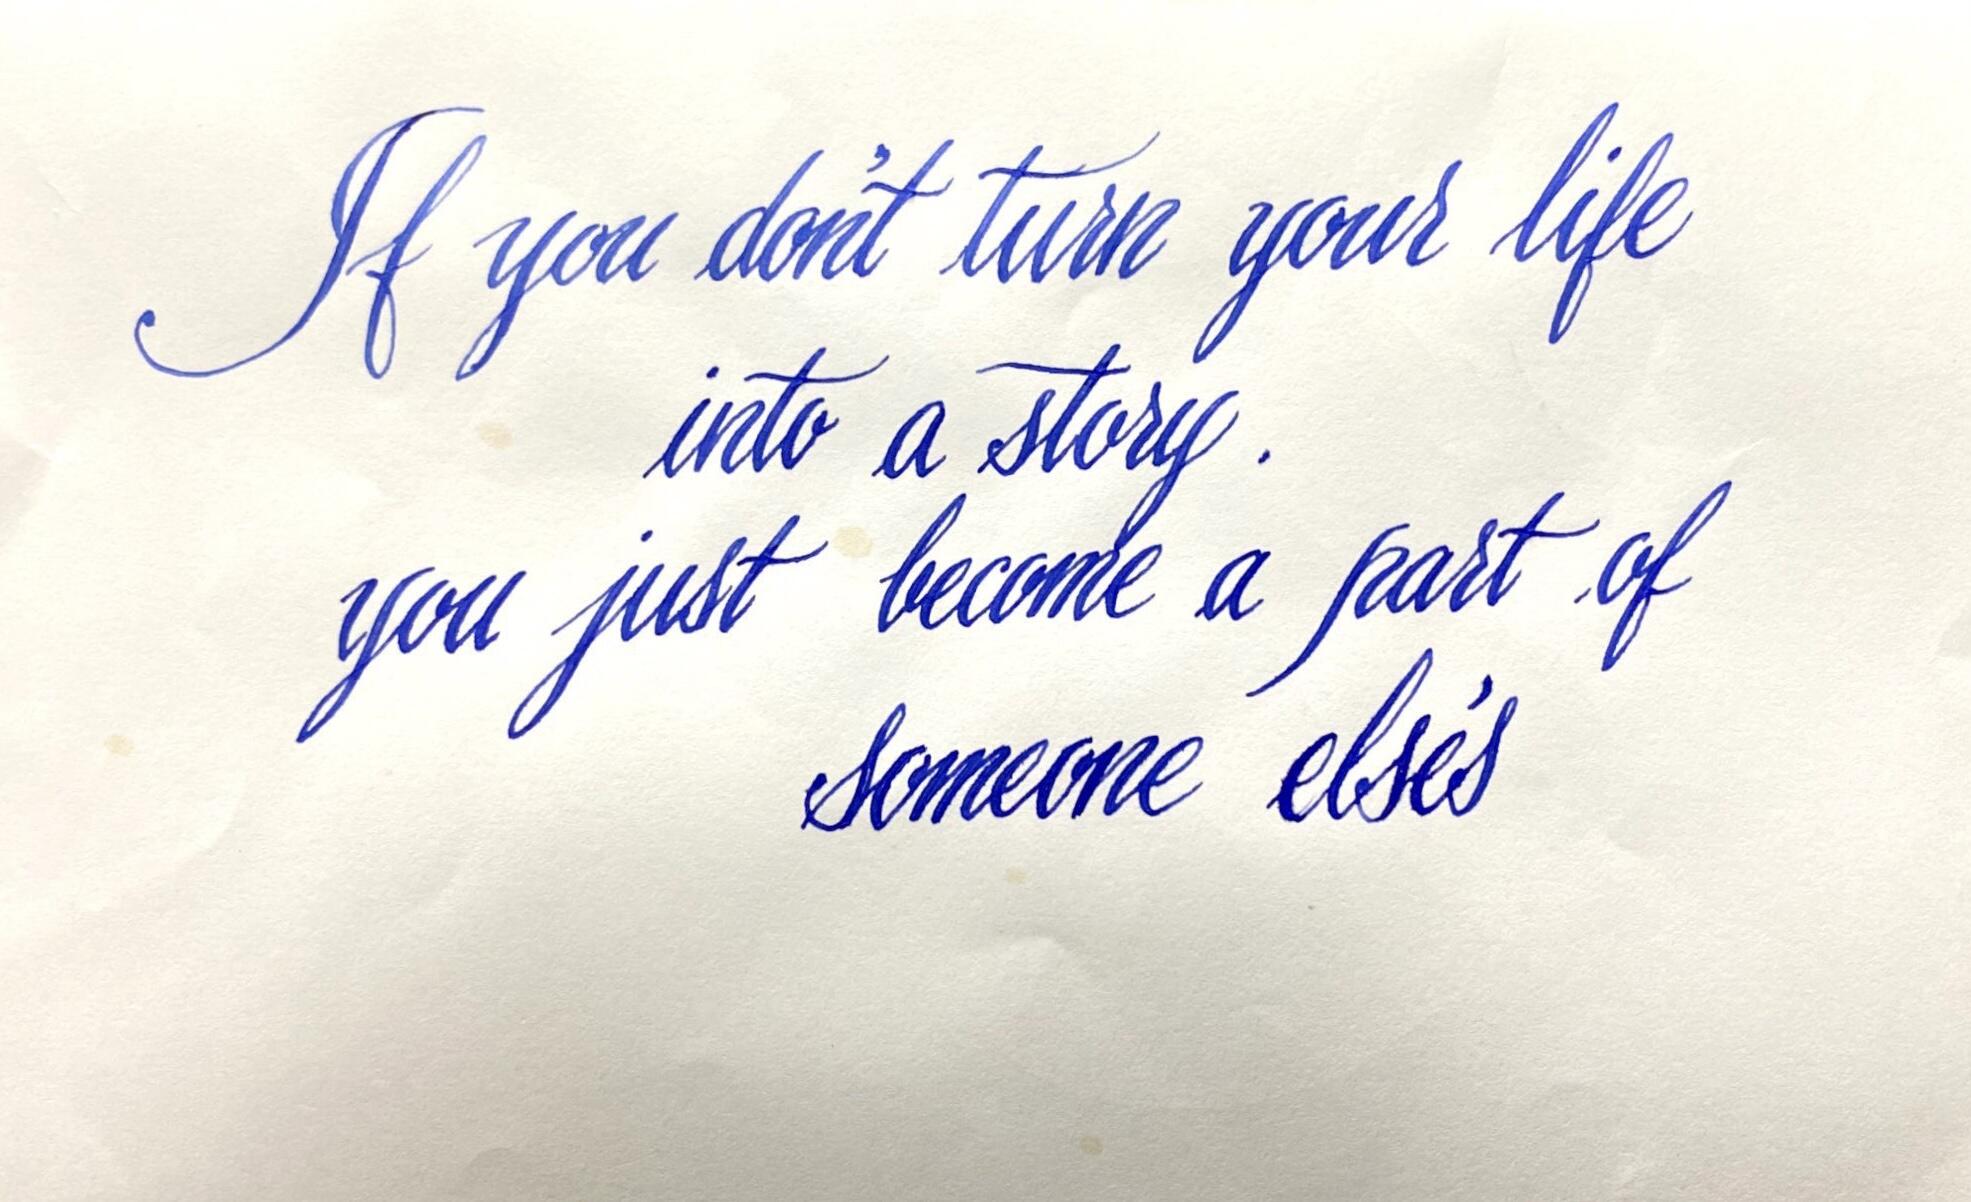 If you don't turn your life
into a story.
you just become a part of
someone else's